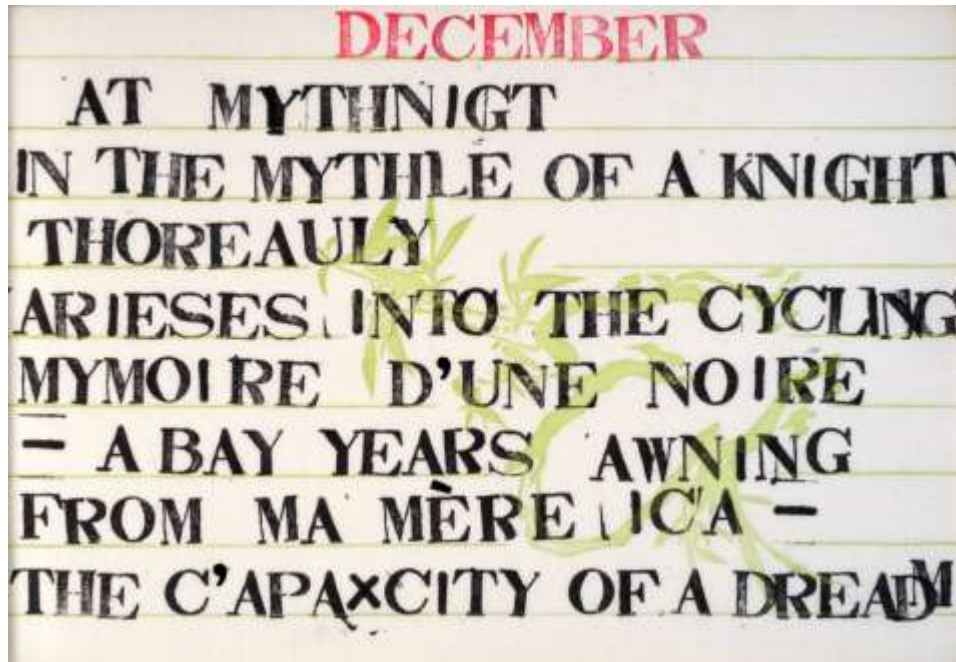 DECEMBER
AT MYTHNIGT
IN THE MYTHLE OF A KNIGHT
THOREAULY
ARIESES INTO THE CYCLING
MYMOIRE D'UNE NOIRE
– A BAY YEARS AWNING
FROM MA MÈRE ICA –
THE C'APAXCITY OF A DREADM